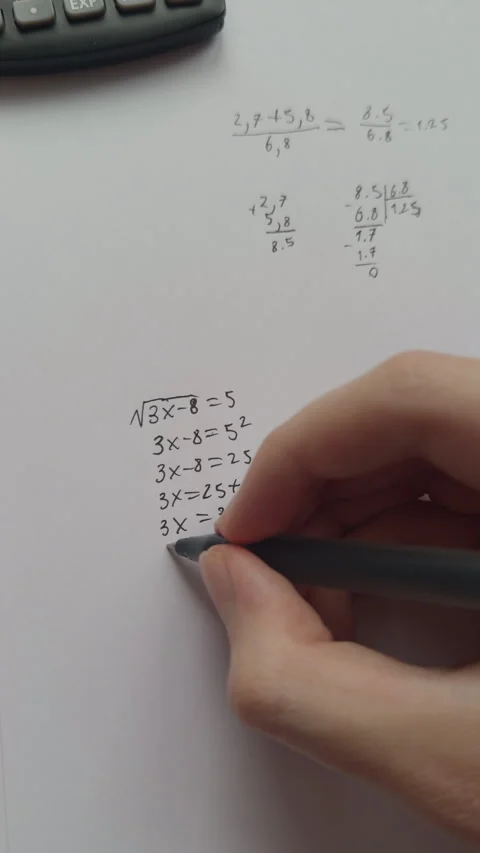 EXP
2,7+5,8 / 6,8 = 8.5 / 6.8 = 1.25
+2,7
5,8
8.5
8.5 | 6.8
- 6.8 | 1.25
1.7
- 1.7
0
√3x-8 = 5
3x-8 = 5²
3x-8 = 25
3x = 25+
3x =